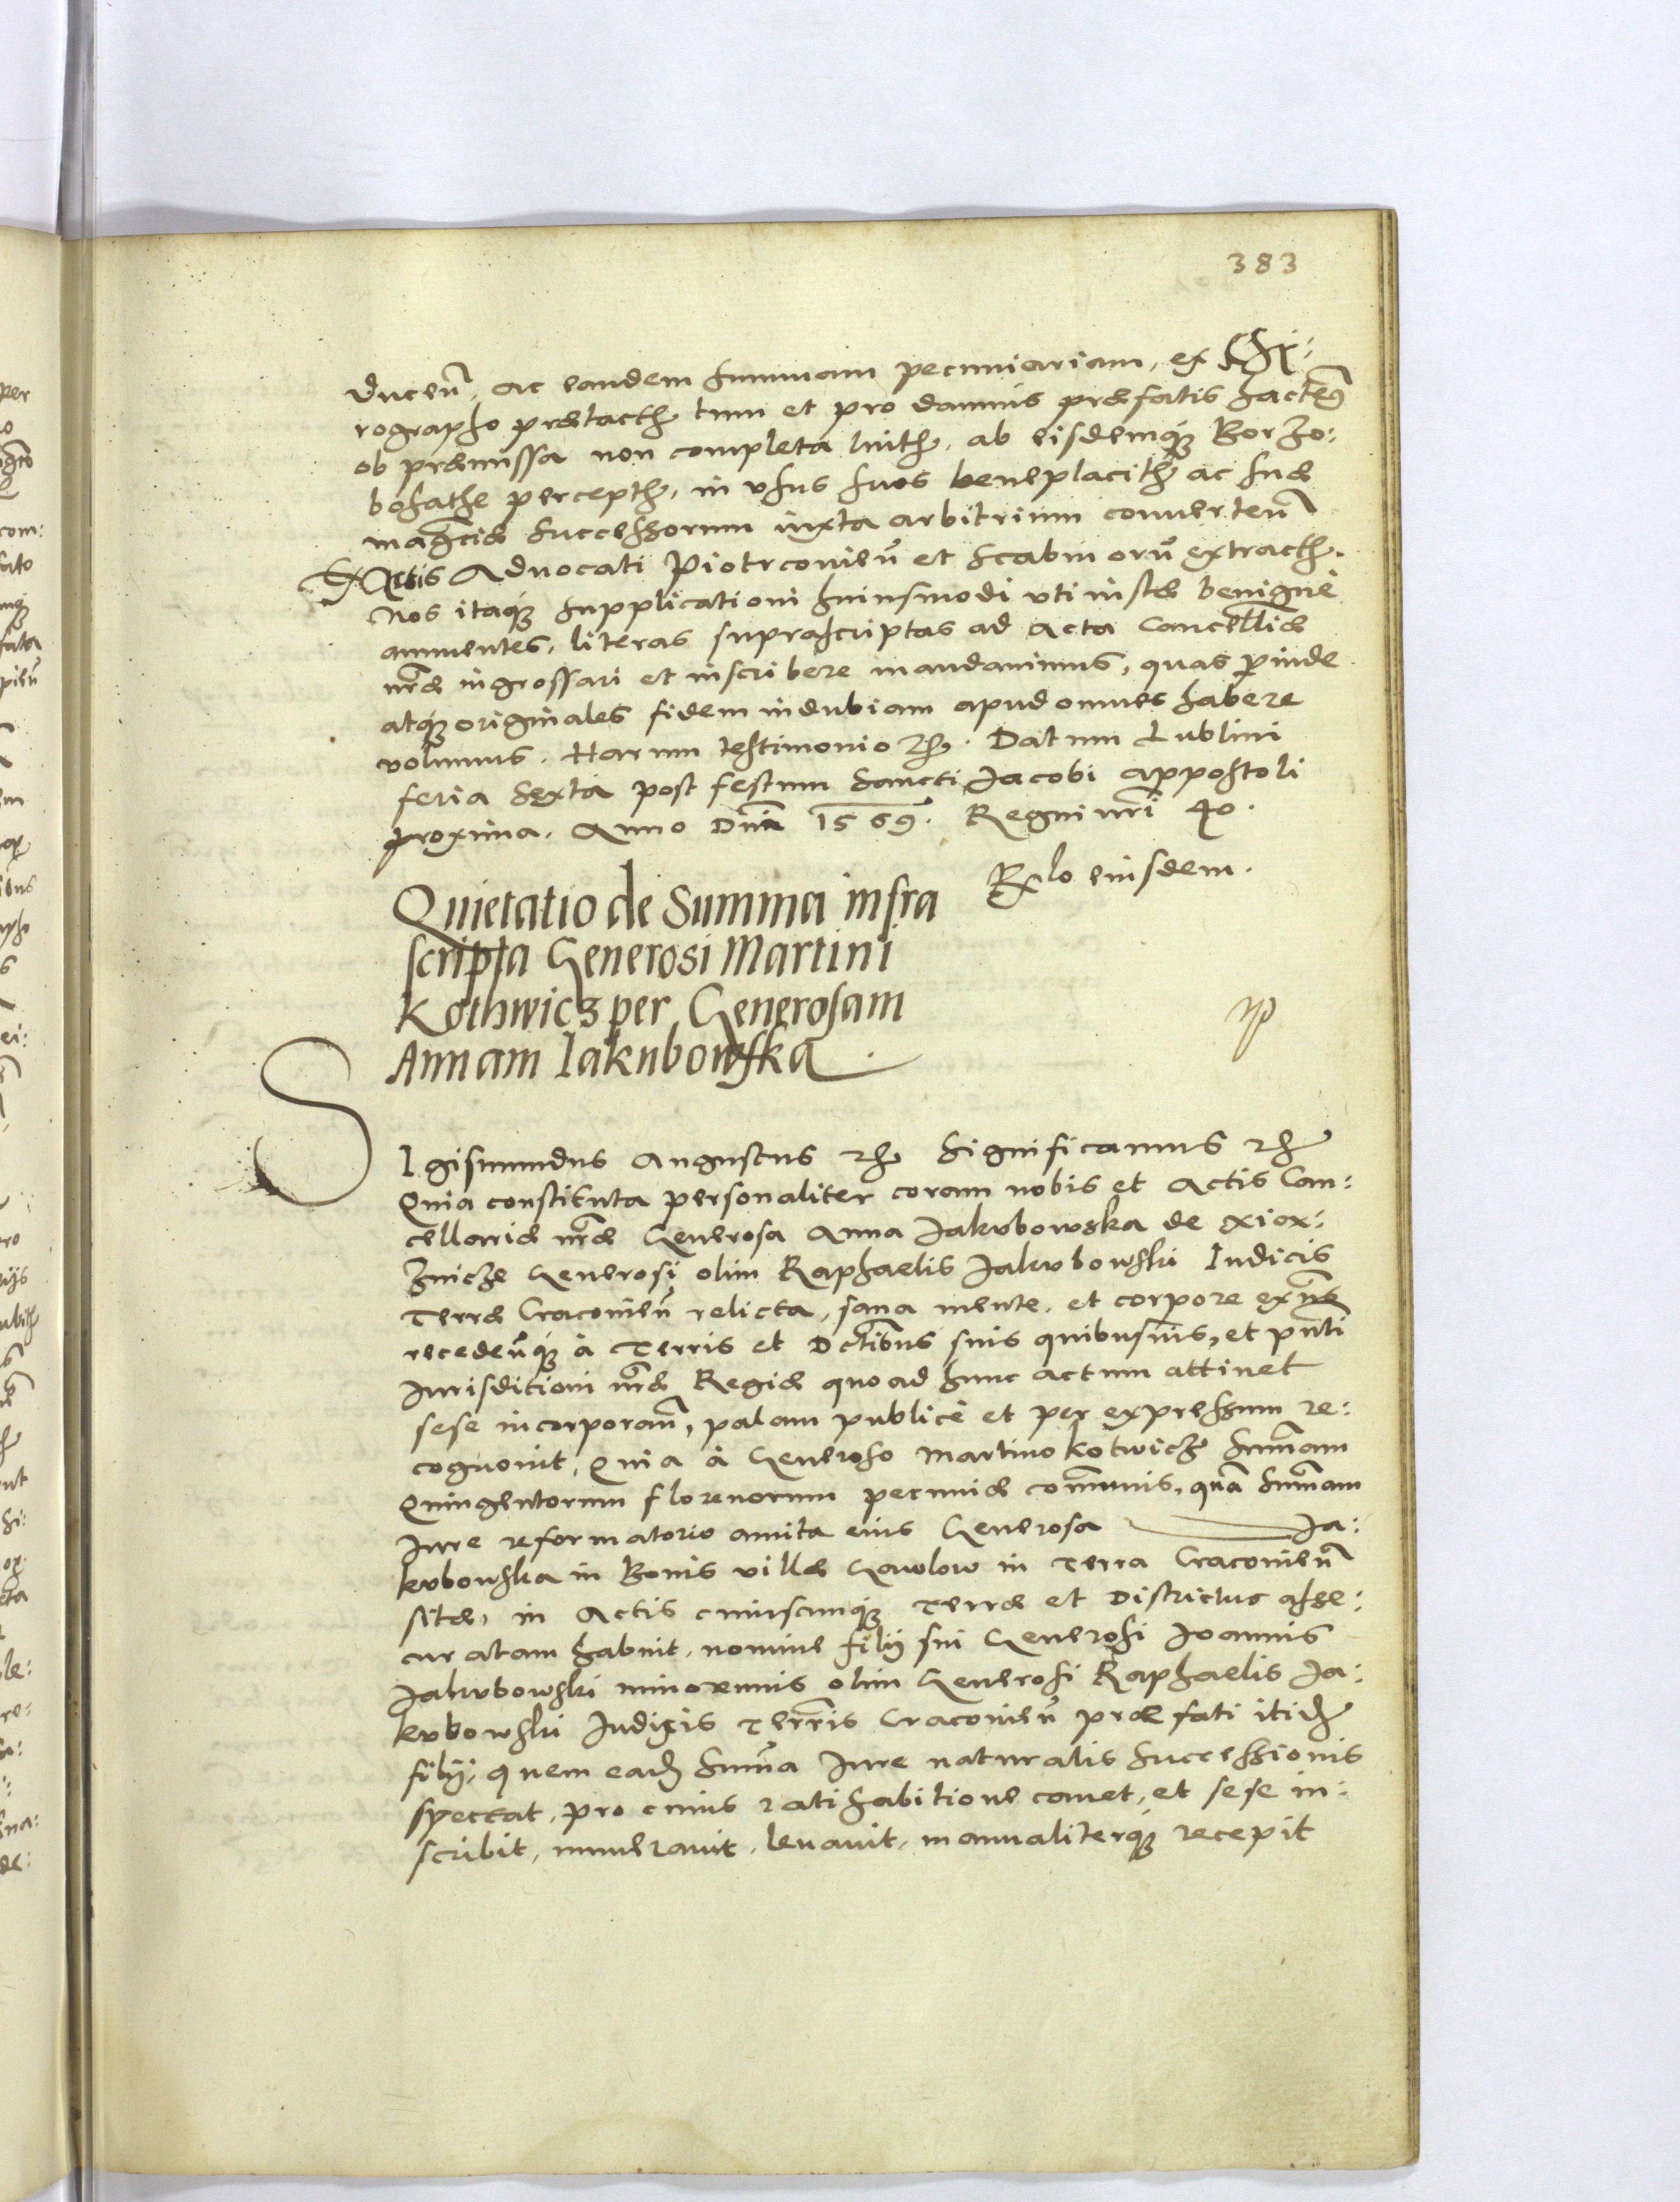 383
ducen̄, ac eandem summam pecuniariam, ex Chi:
rographo prætacth: tum et pro damnis præfatis factas
ob præmissa non completa luith: ab eisdemq₃ Borzo:
bohathe percepth: in vsus suos beneplacith: ac suæ
mag̃ciæ Successorum iuxta arbitrium conuerten̄
Ex Actis Aduocati Piotrcouien̄ et Scabinorū extracth:
Nos itaq₃ supplicationi huiusmodi vti iustæ benignè
annuentes, literas suprascriptas ad Acta Cancelliæ
nr̃æ ingrossari et inscribere mandauimus, quas p̱inde
atq₃ originales fidem indubiam apud omnes habere
volumus. Harum testimonio rh: Datum Lublini
feria Sexta post festum Sancti Jacobi Appostoli
proxima. Anno Dnī 1569. Regni nr̃i 40.
Rẽlo eiusdem.
Quietatio de Summa infra
scripta Generosi Martini
Kothwicz per Generosam
Annam Iakubowska.
SIgismundus Augustus rh: Significamus rh:
Quia constituta personaliter coram nobis et Actis Can:
cellariæ nr̃æ Generosa Anna Jakubowska de Xiax:
znicze Generosi olim Raphaelis Jakubowski Iudicis
Terræ Cracouien̄ relicta, sana mente, et corpore exn̄s
recedeñq₃ à Terris et Dctibus suis quibusuis, et pn̄ti
Jurisditioni nr̃æ Regiæ quo ad hunc actum attinet
sese incorporan̄, palam publicè et per expressum re:
cognouit, Quia à Generoso Martino Kotwicz Sum̃am
Quingentorum florenorum pecuniæ com̃unis, quā Sum̃am
Iure reformatorio amita eius Generosa Ja:
kubowska in Bonis villæ Gawlow in Terra Cracouien̄
sitæ, in Actis cuiuscunq₃ Terræ et Districtus asse:
curatam habuit, nomine filij sui Generosi Joannis
Jakubowski minorennis olim Generosi Raphaelis Ja:
kubowski Judicis Terr̃is Cracouien̄ præfati itid͠
filij, quem ead͠ Sum̃a Iure naturalis successionis
spectat, pro cuius ratihabitione cauet, et sese in:
scribit, numerauit, leuauit, manualiterq₃ recepit